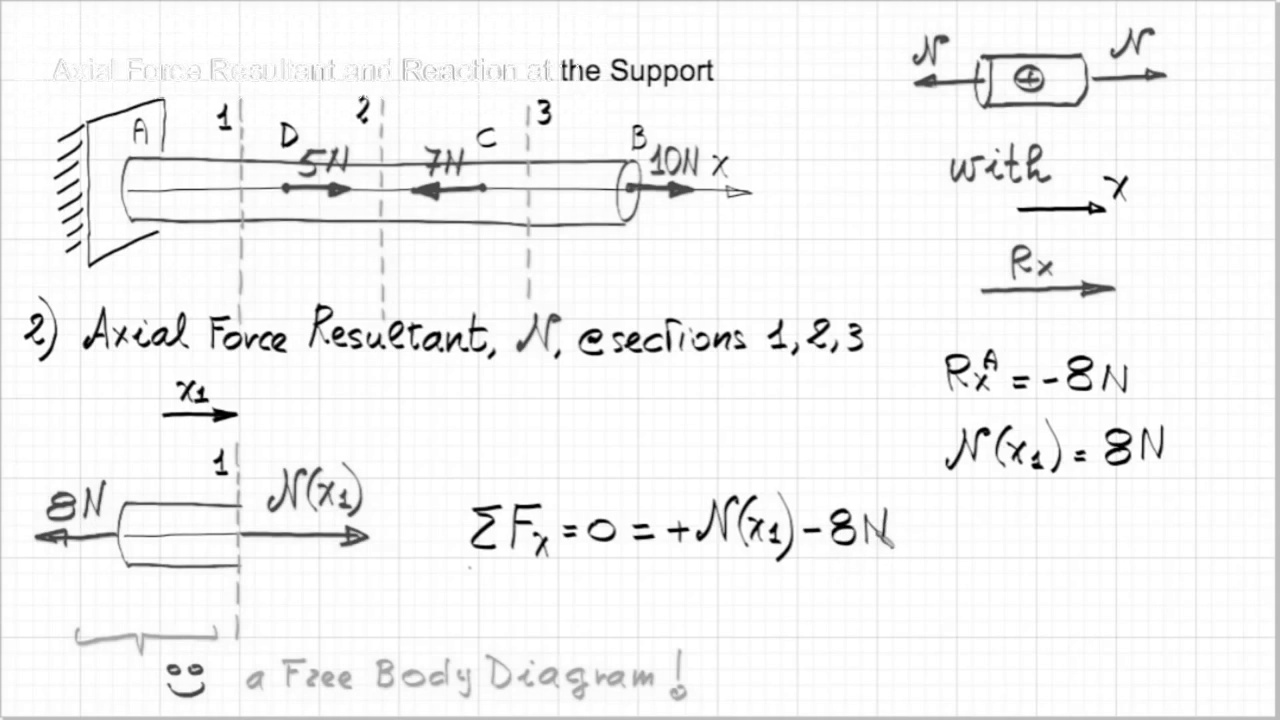 Axial Force Resultant and Reaction at the Support
1 2 3
A D C B
5N 7N 10N x
N N
⊕
with
x
Rx
2) Axial Force Resultant, N, @sections 1,2,3
RxA = -8N
N(x1) = 8N
x1
1
8N N(x1)
ΣFx = 0 = +N(x1) - 8N
a Free Body Diagram!